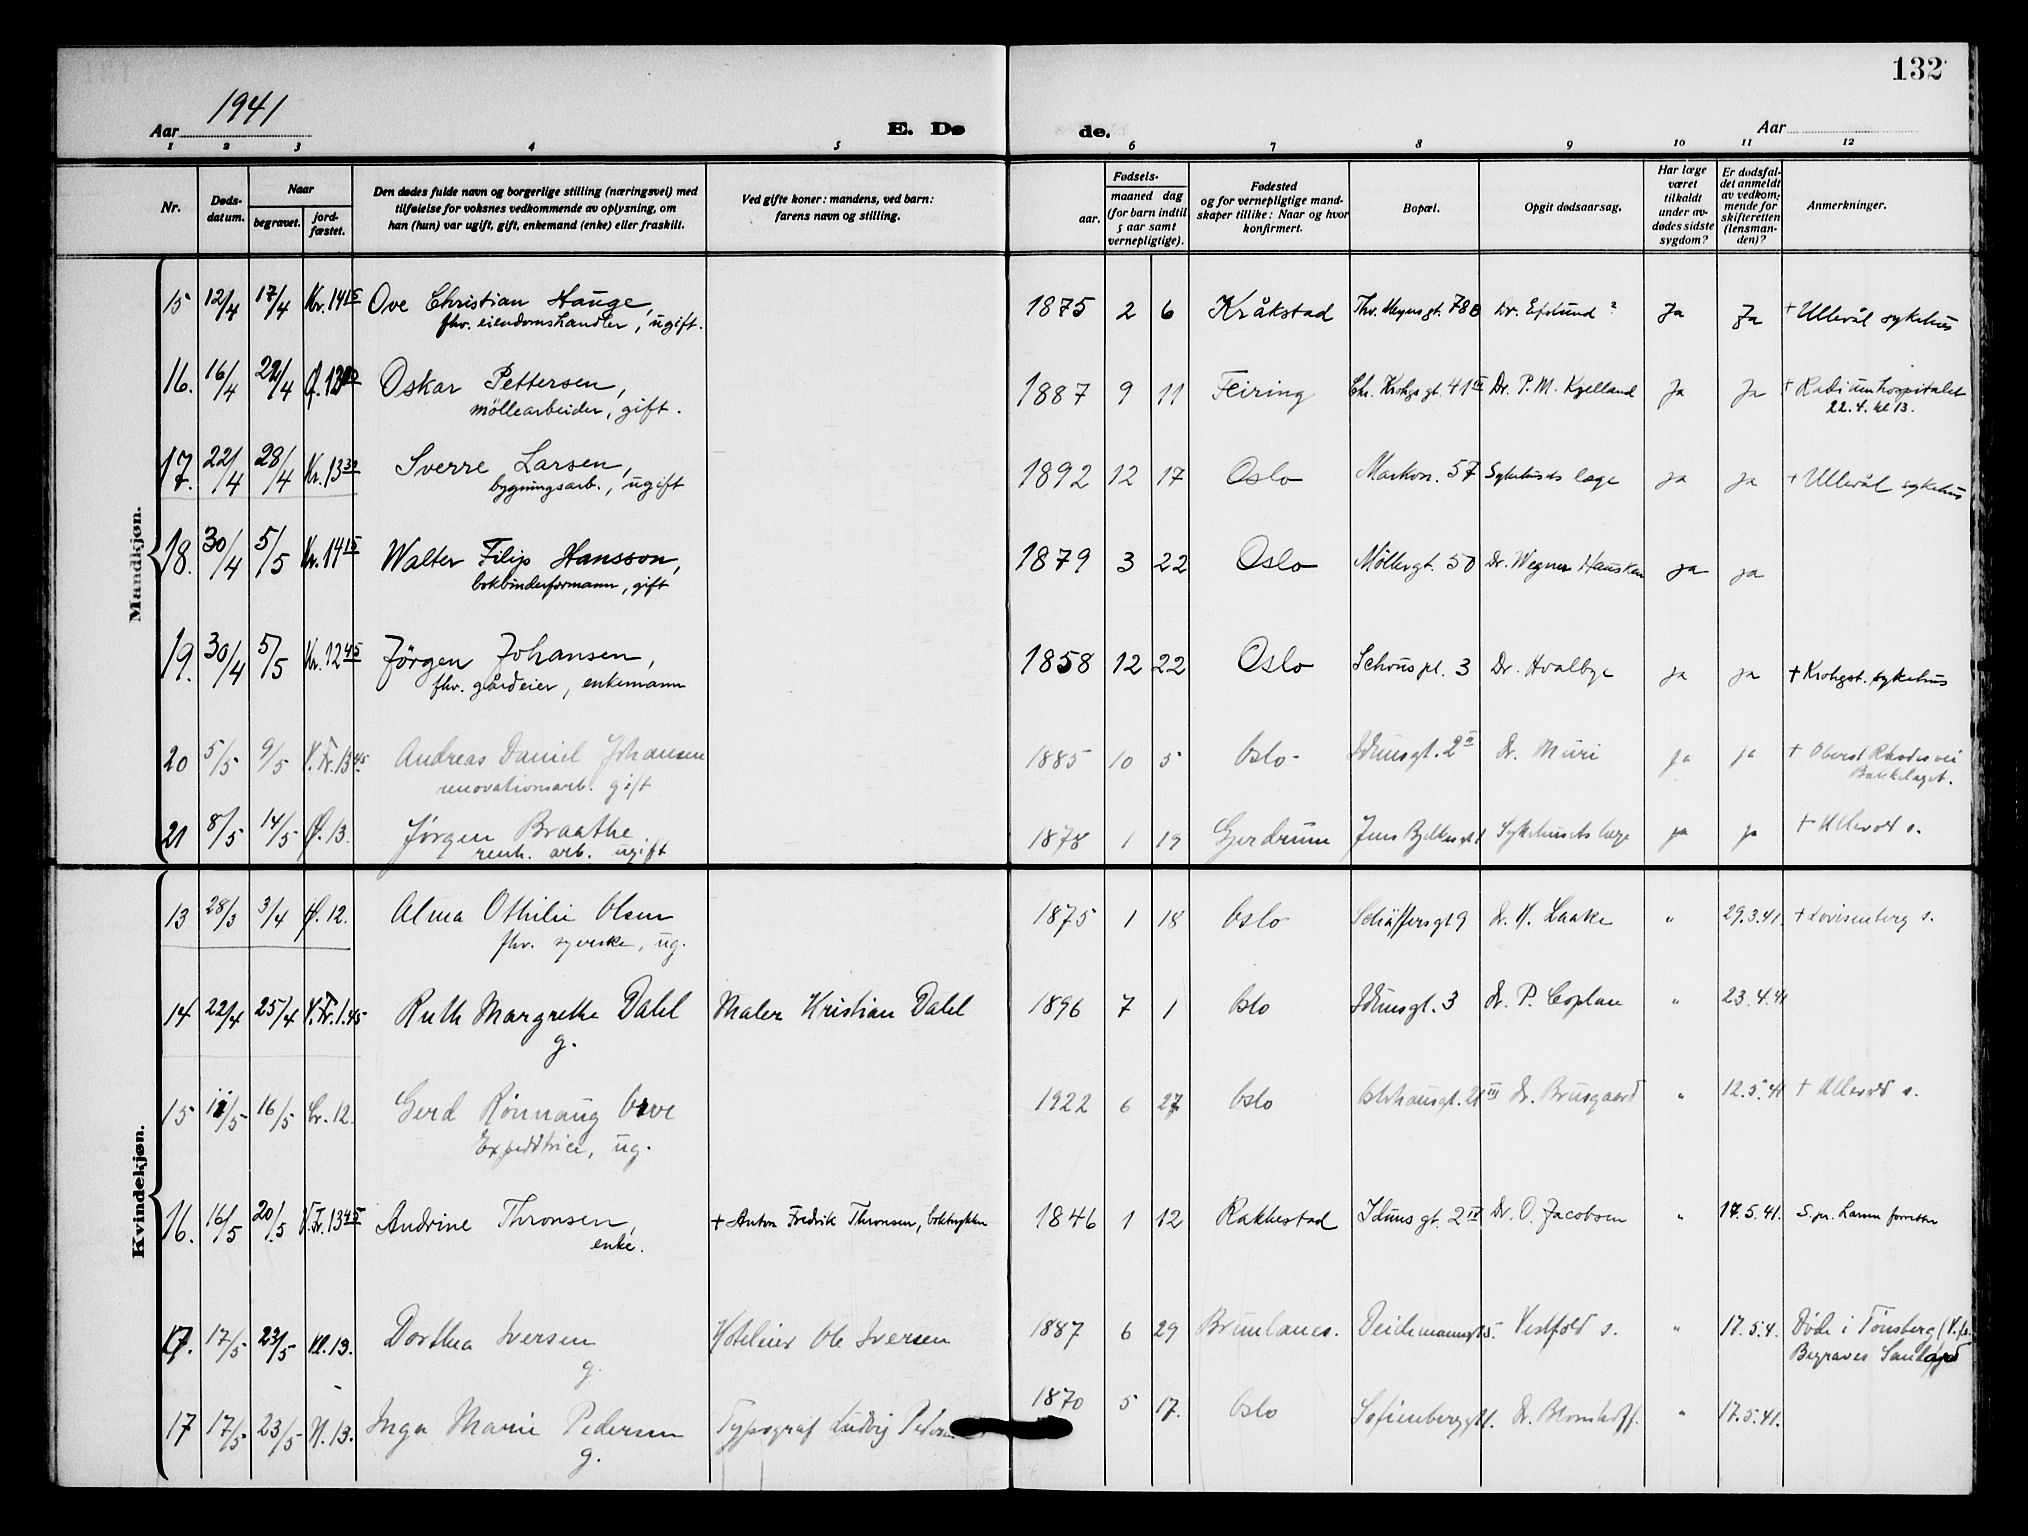 132
1941
Aar
E. Dø
de.
Aar
1 2 3 4 5 6 7 8 9 10 11 12
Nr.
Døds-
datum.
Naar
begravet.
jord-
fæstet.
Den dødes fulde navn og borgerlige stilling (næringsvei) med
tilføielse for voksnes vedkommende av oplysning, om
han (hun) var ugift, gift, enkemand (enke) eller fraskilt.
Ved gifte koner: mandens, ved barn:
farens navn og stilling.
Fødsels-
aar.
maaned dag
(for barn indtil
5 aar samt
vernepligtige).
Fødested
og for vernepligtige mand-
skaper tillike: Naar og hvor
konfirmert.
Bopæl.
Opgit dødsaarsag.
Har læge
været
tilkaldt
under av-
dødes sidste
sygdom?
Er dødsfal-
det anmeldt
av vedkom-
mende for
skifteretten
(lensman-
den)?
Anmerkninger.
Mandkjøn.
15 12/4 17/4 Kr. 14 15 Ove Christian Hauge, 1875 2 6 Kråkstad Thv. Meyersgt. 78 Ja Ja + Ullevål sykehus
fhv. eiendomshandler, ugift.
16. 16/4 22/4 Oskar Pettersen, 1887 9 11 Feiring Chr. Krohgs gt. 41 III Dr. P. M. Kjelland Ja Ja + Radiumhospitalet
møllearbeider, gift. 22.4. kl 13.
17. 22/4 28/4 Kr. 13 30 Sverre Larsen, 1892 12 17 Oslo Markvn. 57 Sykehusets læge ja ja + Ullevål sykehus
bygningsarb., ugift
18. 30/4 5/5 Kr. 14 15 Walter Filip Hansson, 1879 3 22 Oslo Møllergt. 50 Dr. Wegner Hausken ja ja
bokbinderformann, gift
19. 30/4 5/5 Kr. 12 45 Jörgen Johansen, 1858 12 22 Oslo Schous pl. 3 Dr. Hvalbye ja ja + Krohgst. sykehus
fhv. gårdeier, enkemann
20 5/5 9/5 V. Fr. 13 45 Andreas Daniel Johansen 1885 10 5 Oslo - Idunsgt. 2 II Dr. Muri ja ja + Oberst Rhodesvei
renovationsarb. gift Bækkelaget.
21 8/5 14/5 Ø. 13. Jørgen Braathe 1878 1 19 Gjerdrum Jens Bjelkesgt Sykehusets læge ja ja + Ullevål s.
renh. arb. ugift
Kvindekjøn.
13 28/3 3/4 Ø. 12. Alma Othilie Olsen 1875 1 18 Oslo Schäffersgt 9 Dr. H. Laake " 29.3.41. + Lovisenberg s.
fhv. syerske, ug.
14 22/4 25/4 V. Fr. 1.45 Ruth Margrethe Dahl Maler Kristian Dahl 1896 7 1 Oslo Idunsgt. 3 Dr. P. Coplan " 23.4.41
g.
15 11/5 16/5 Cr. 12. Gerd Rönnaug 1922 6 27 Oslo III Dr. Brusgaard " 12.5.41 + Ullevål s.
Expeditrice, ug.
16. 16/5 20/5 V. Fr. 13 45 Andrine Thronsen, + Anton Fredrik Thronsen, boktrykker 1846 1 12 Rakkestad Iduns gt. 2 IV Dr. O. Jacobsen " 17.5.41. S. pr. Larsen forrettar
enke.
17. 17/5 23/5 Kl. 13. Dorthea Iversen Hoteleier Ole Iversen 1887 6 29 Brunlanes. Deichmannsgt 5. Vestfold s. " 17.5.4. Døde i Tønsberg (V.f.s.
g. Begraves Sandefjord
17 17/5 23/5 N. 13. Inga Marie Pedersen Typograf Ludvig Peder 1870 5 17. Oslo Sofienberggt Dr. Blomhoff. " 17.5.41.
g.